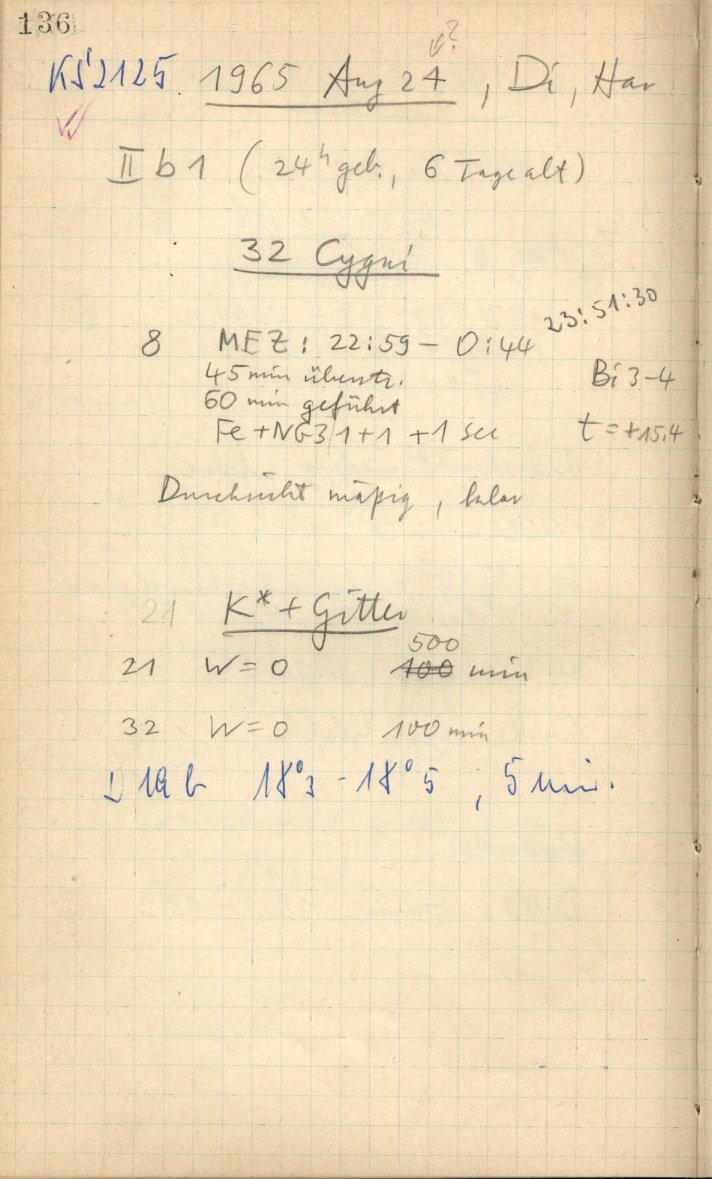 136
KS 2125. 1965 Aug 24, Di, Har
II b 1 (24ʰ geb., 6 Tage alt)
32 Cygni
23:51:30
8 MEZ: 22:59 – 0:44
45 min überstr. Bi 3-4
60 min geführt
Fe + NG3 1+1+1 sec t = +15.4
Durchsicht mäßig, klar
21 K* + Gitter
500
21 W = 0 100 min
32 W = 0 100 min
D 19 b 18°3 - 18°5, 5 min.